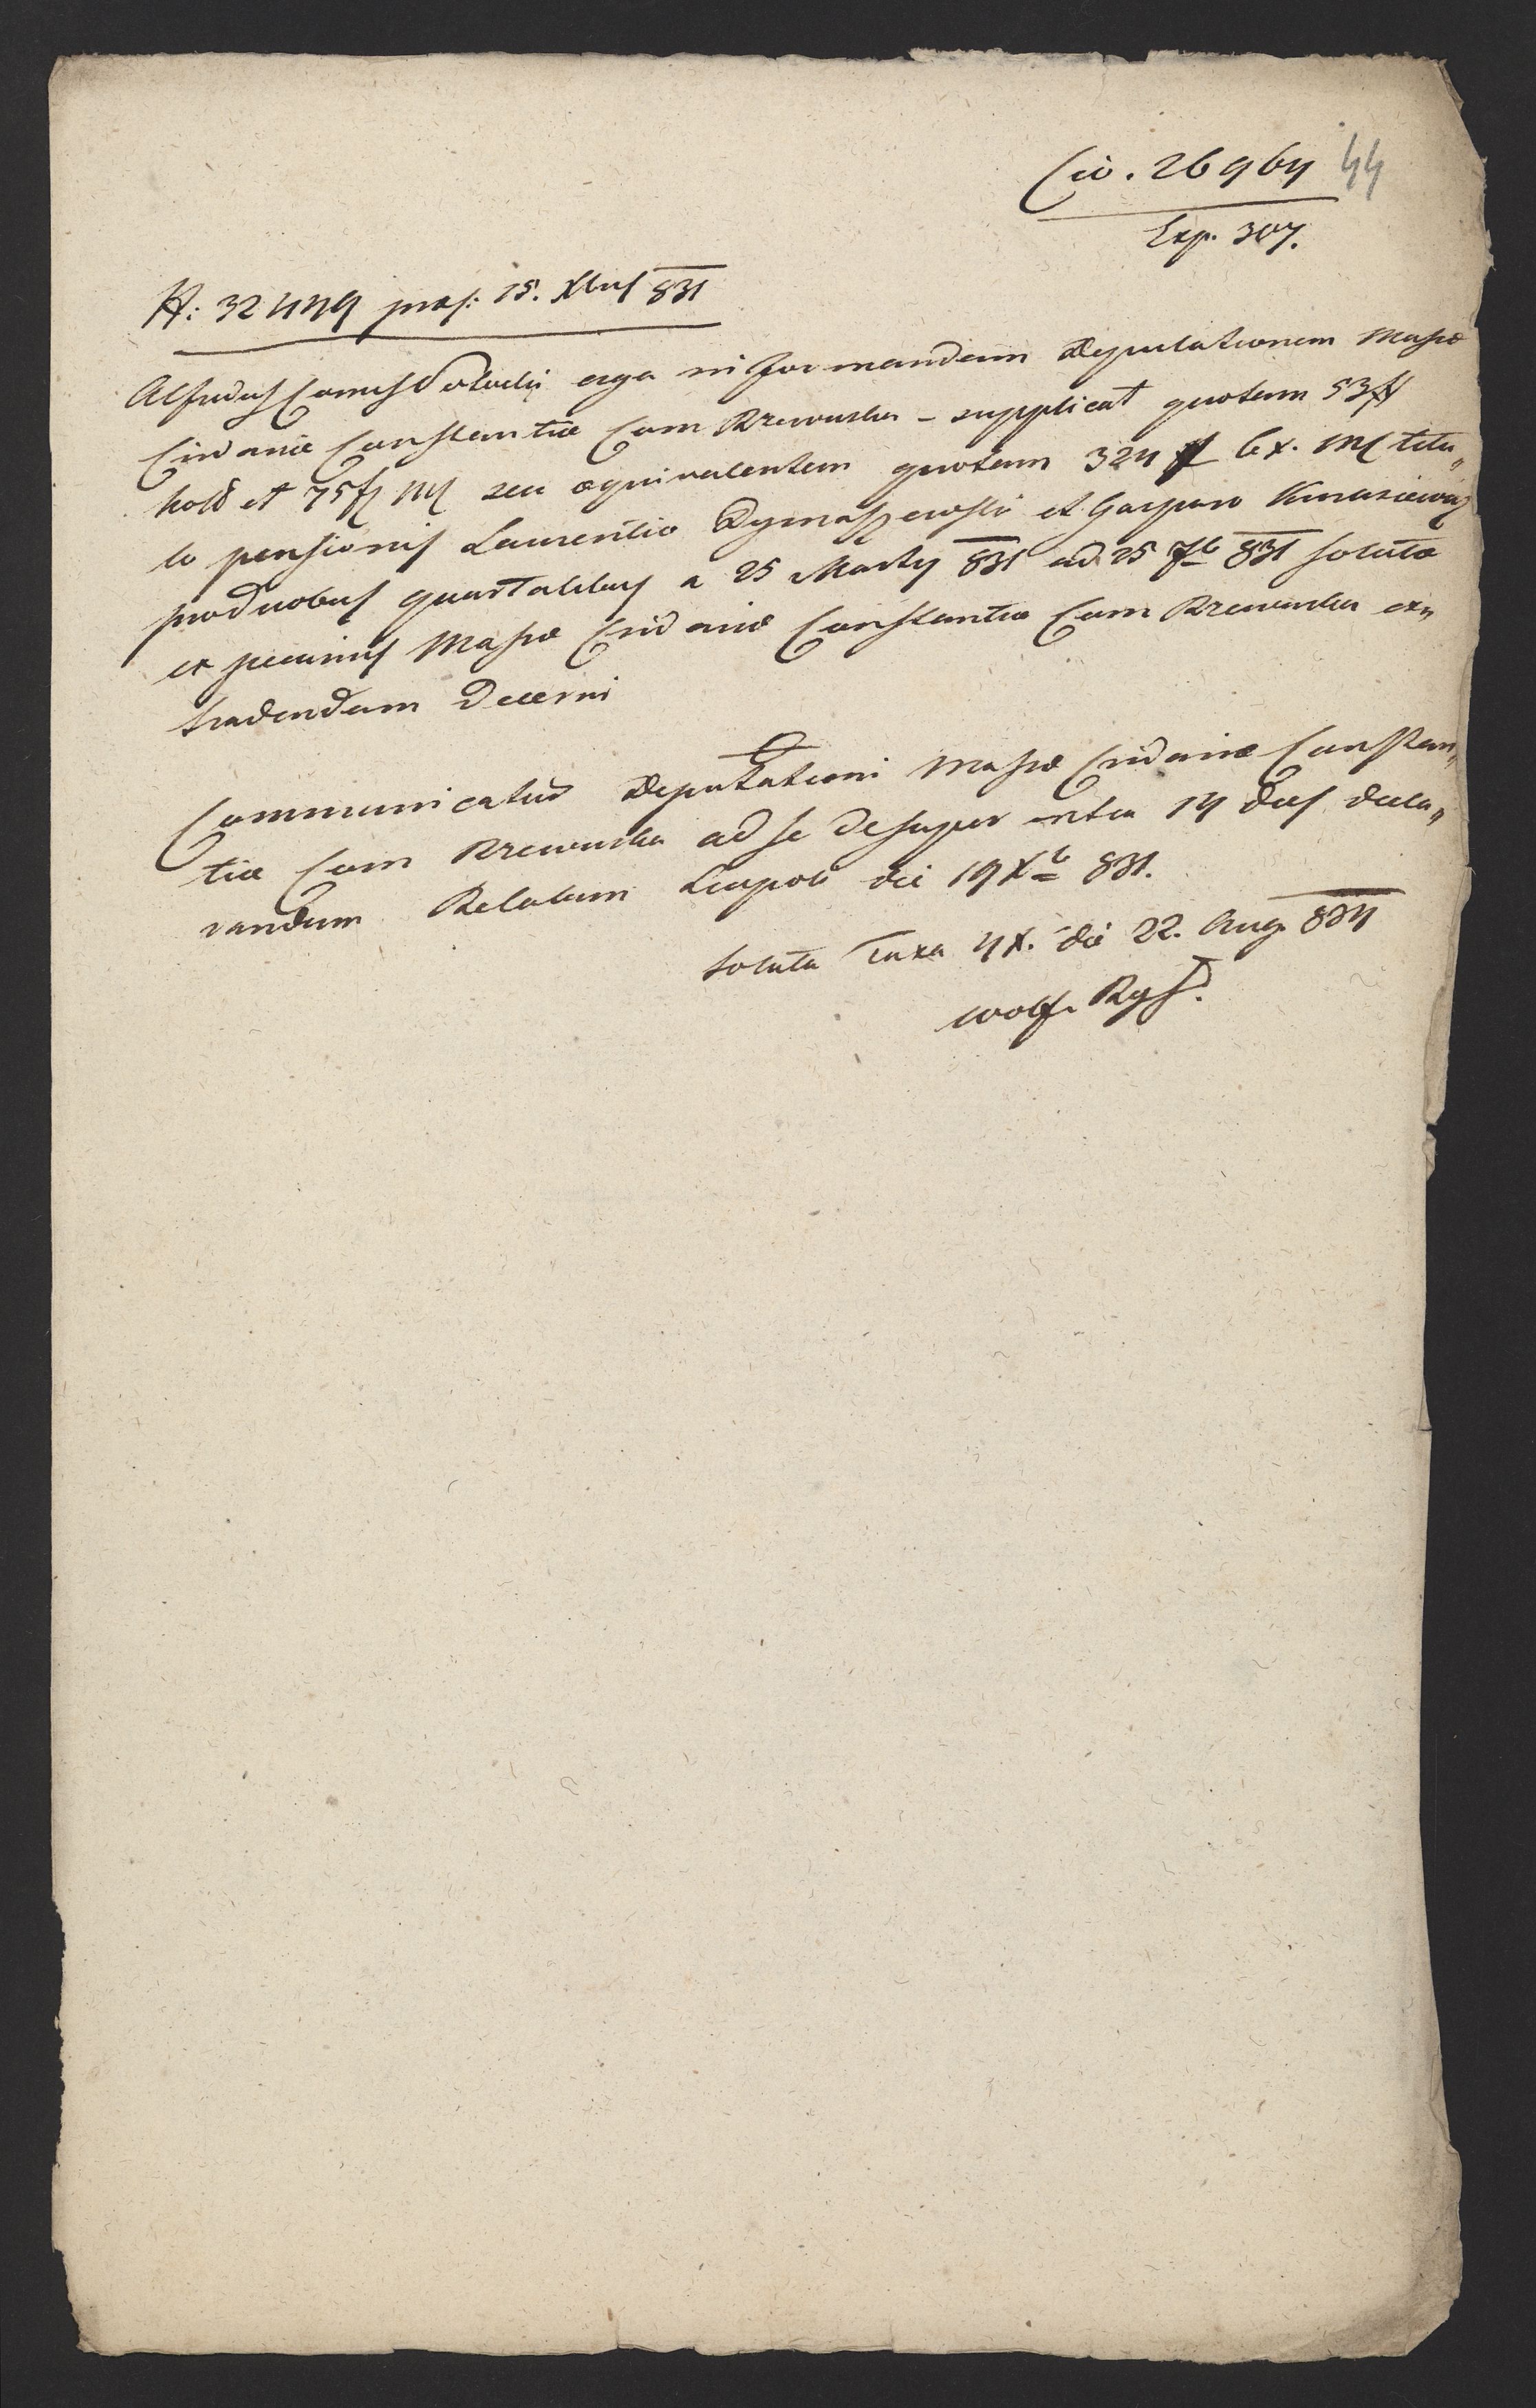 Civ. 26964 44
Exp. 307.
N: 32449 præs: 15. Xbris 831
Alfredus Comes Potocki erga informandam Deputationem Massæ
Cridariæ Constantiæ Com Rzewuska - supplicat quotam 53 #
holl et 75 f M seu æquivalentem quotam 324 f 6 x. M titu„
lo pensionis Laurentio Dymaszewski et Gaspari
pro duobus quartalibus a 25 Marty 831 ad 25 7b 831 solutæ
ex pecuniis Massæ Cridariæ Constantiæ Com Rzewuska ex„
tradendam Decerni
Communicatur Deputationi Massæ Cridariæ Constan„
tiæ Com Rzewuska ad se desuper intra 14 dies decla„
randum Relatum Leopoli die 19 Xb 831.
Soluta Taxa 4 X. die 22. Aug. 834
Wolf. Rgst.